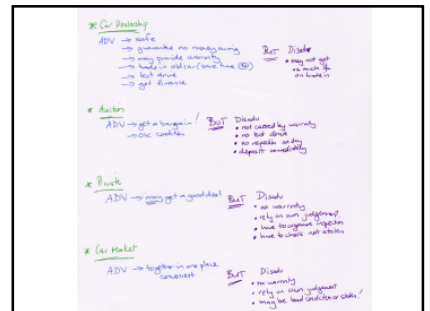 * Car Dealership
ADV → safe
→ guarantee no money owing
→ may provide warranty
→ trade in old car (save time)
→ test drive
→ get finance
BUT Disadv
• may not get
as much $ 
on trade in
* Auction
ADV → get a bargain!
→ OK condition
BUT Disadv
• not covered by warranty
• no test drive
• no inspection on day
• deposit immediately
* Private
ADV → may get a good deal
BUT Disadv
• no warranty
• rely on own judgement
• have to organise inspection
• have to check not stolen
* Car Market
ADV → together in one place
convenient
BUT Disadv
• no warranty
• rely on own judgement
• may be bad condition or stolen!